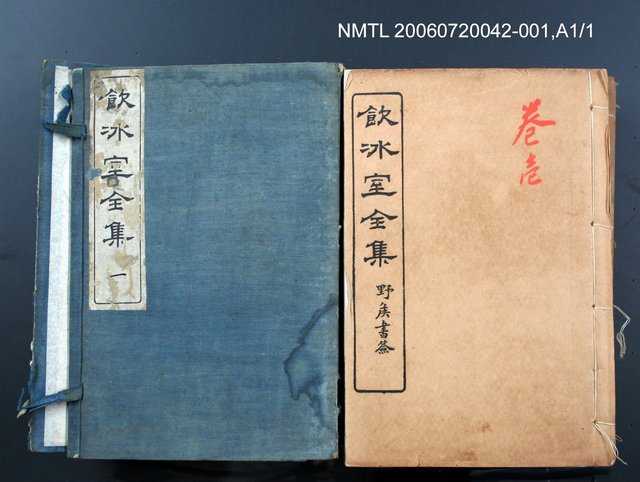 NMTL 20060720042-001,A1/1
飲冰室全集 一
飲冰室全集
野矦書簽
卷壱